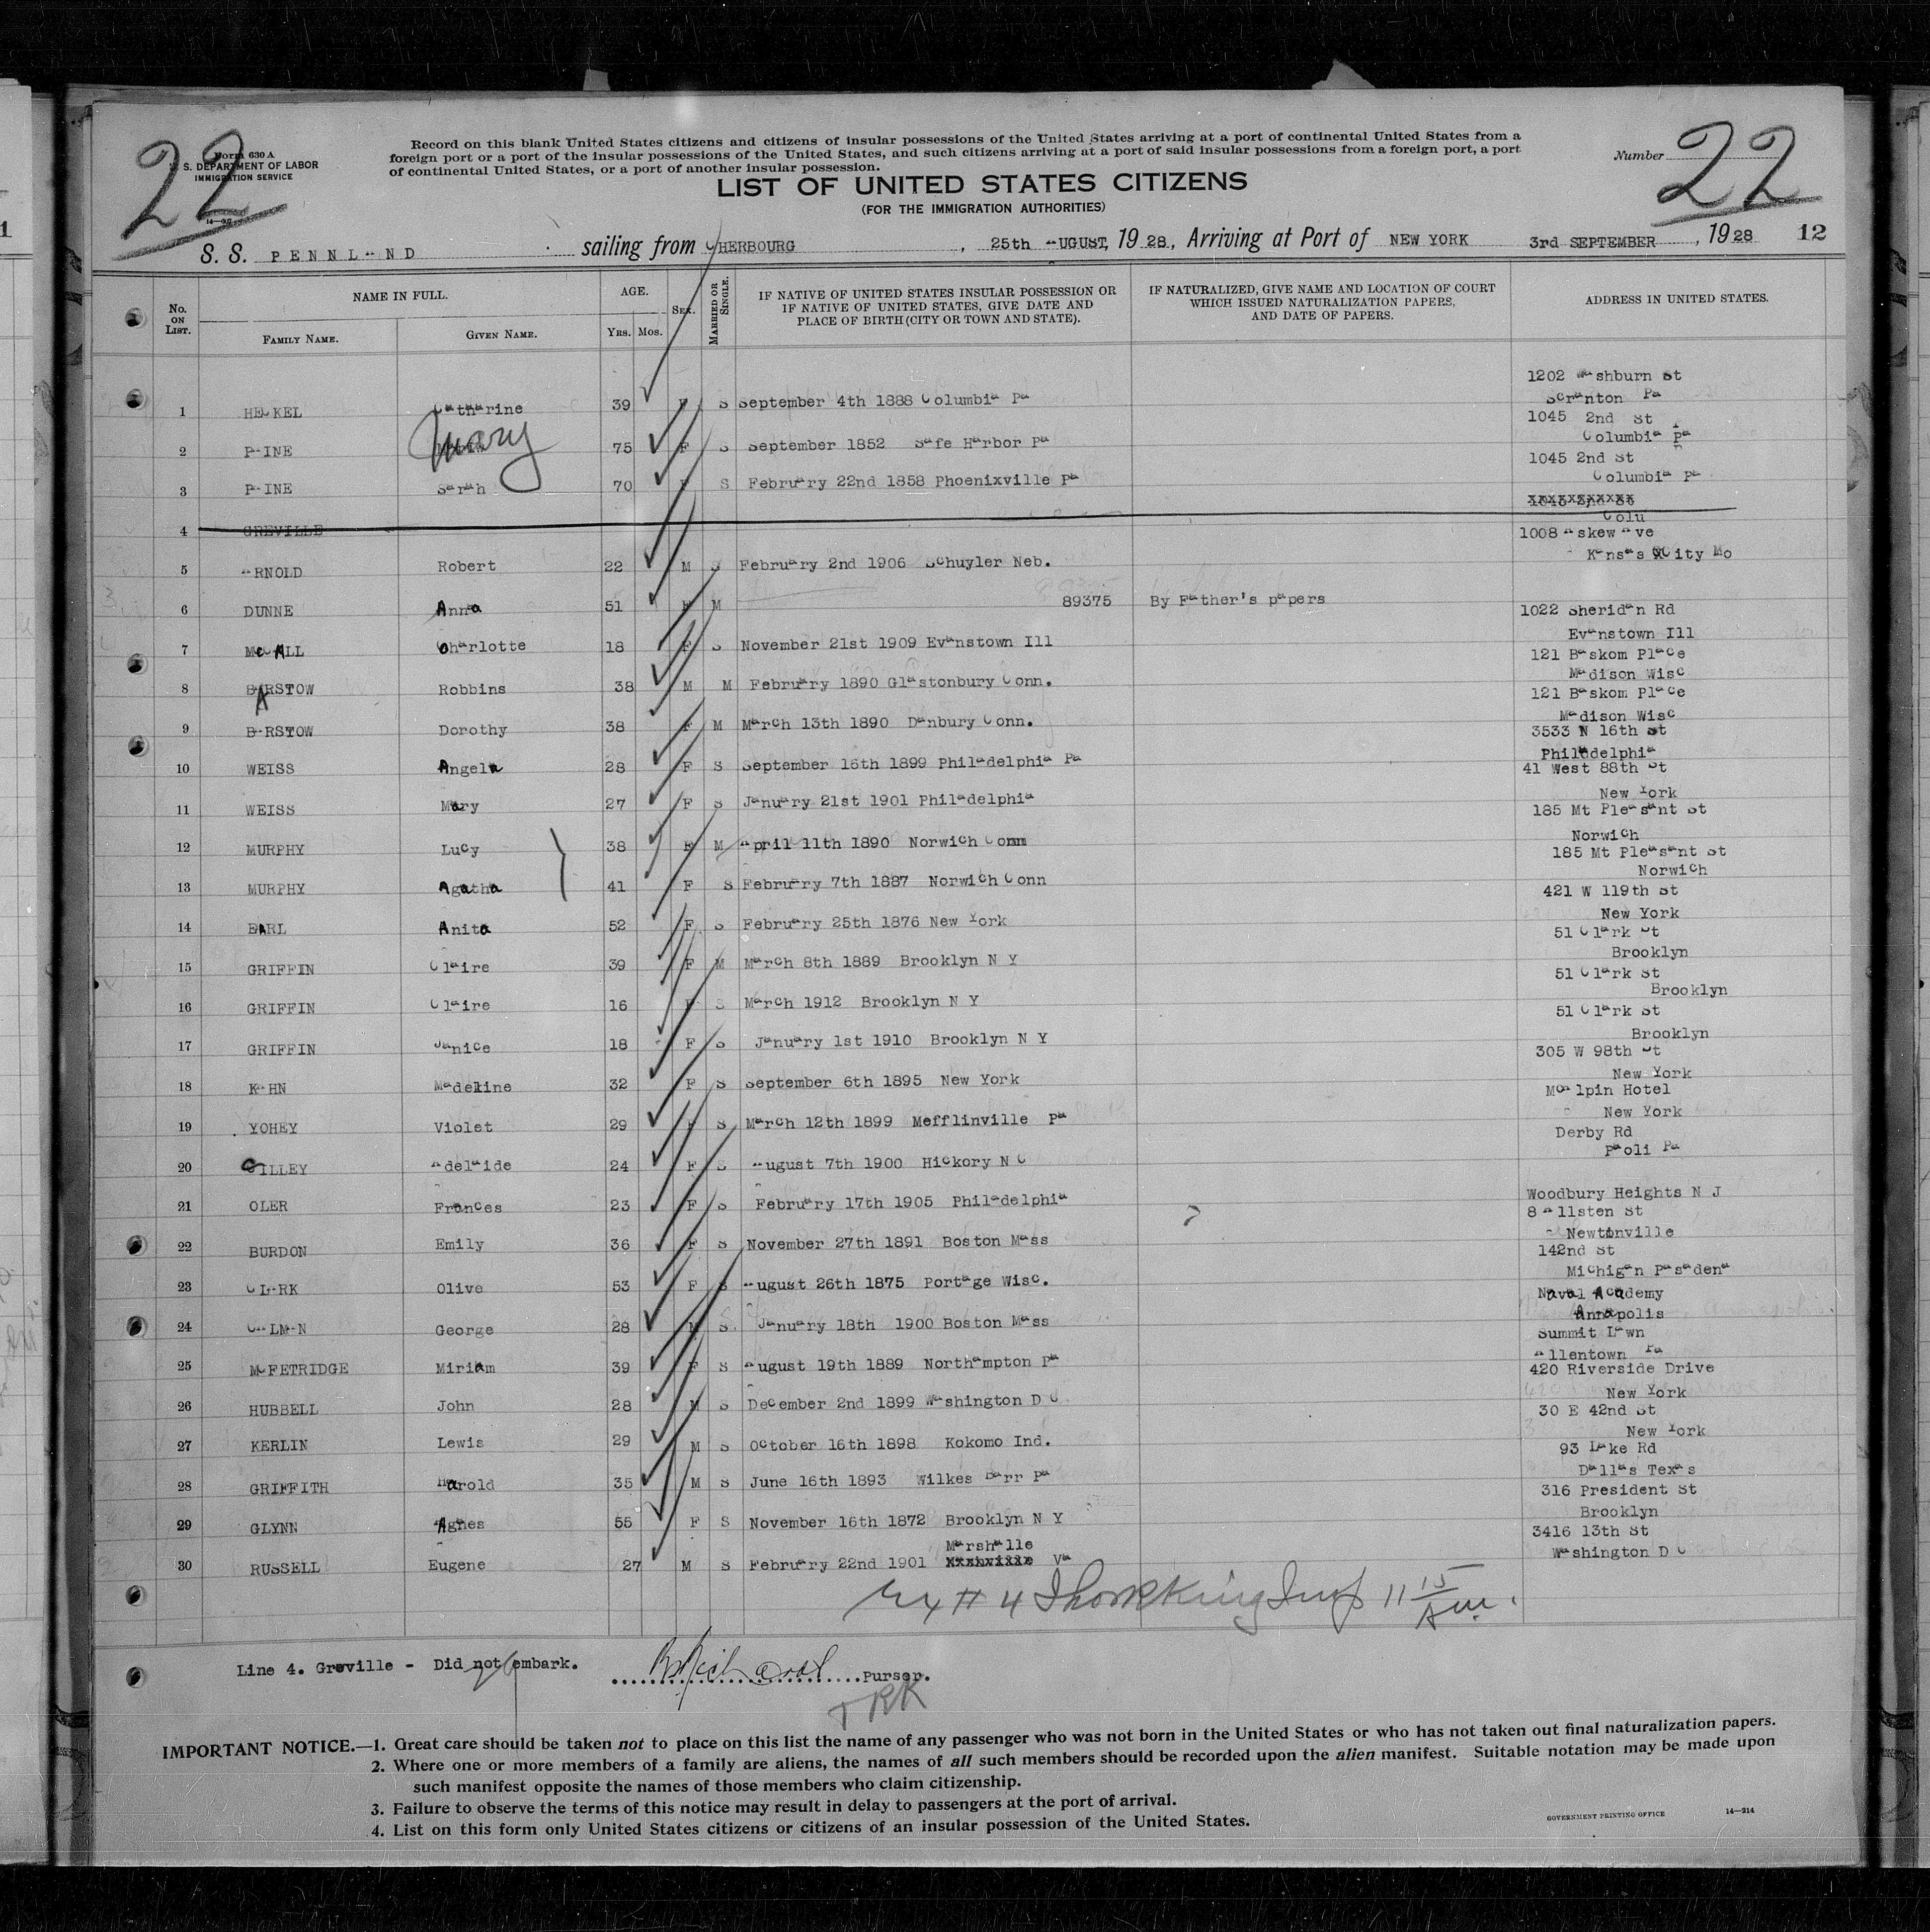 22
Form 630 A
U. S. DEPARTMENT OF LABOR
IMMIGRATION SERVICE
Record on this blank United States citizens and citizens of insular possessions of the United States arriving at a port of continental United States from a
foreign port or a port of the insular possessions of the United States, and such citizens arriving at a port of said insular possessions from a foreign port, a port
of continental United States, or a port of another insular possession.
Number 22
LIST OF UNITED STATES CITIZENS
(FOR THE IMMIGRATION AUTHORITIES)
S. S. PENNLAND sailing from CHERBOURG, 25th AUGUST, 1928, Arriving at Port of NEW YORK 3rd SEPTEMBER, 1928 12
No. ON LIST.
NAME IN FULL.
FAMILY NAME. GIVEN NAME.
AGE.
Yrs. Mos.
SEX.
MARRIED OR SINGLE.
IF NATIVE OF UNITED STATES INSULAR POSSESSION OR
IF NATIVE OF UNITED STATES, GIVE DATE AND
PLACE OF BIRTH (CITY OR TOWN AND STATE).
IF NATURALIZED, GIVE NAME AND LOCATION OF COURT
WHICH ISSUED NATURALIZATION PAPERS,
AND DATE OF PAPERS.
ADDRESS IN UNITED STATES.
1202 Washburn St
1 HECKEL Catharine 39 F S September 4th 1888 Columbia Pa Scranton Pa
1045 2nd St
2 PAINE Mary 75 F S September 1852 Safe Harbor Pa Columbia Pa
1045 2nd St
3 PAINE Sarah 70 F S February 22nd 1858 Phoenixville Pa Columbia Pa
1045 2nd St
4 GREVILLE Colu
1008 Askew Ave
5 ARNOLD Robert 22 M S February 2nd 1906 Schuyler Neb. Kansas City Mo
6 DUNNE Anna 51 F M 89375 By Father's papers
1022 Sheridan Rd
7 McCALL Charlotte 18 F S November 21st 1909 Evanstown Ill Evanstown Ill
121 Baskom Place
8 BARSTOW Robbins 38 M M February 1890 Glastonbury Conn. Madison Wisc
121 Baskom Place
9 BARSTOW Dorothy 38 F M March 13th 1890 Danbury Conn. Madison Wisc
3533 N 16th St
10 WEISS Angela 28 F S September 16th 1899 Philadelphia Pa Philadelphia
41 West 88th St
11 WEISS Mary 27 F S January 21st 1901 Philadelphia New York
185 Mt Pleasant St
12 MURPHY Lucy 38 F M April 11th 1890 Norwich Conn Norwich
185 Mt Pleasant St
13 MURPHY Agatha 41 F S February 7th 1887 Norwich Conn Norwich
421 W 119th St
14 EARL Anita 52 F S February 25th 1876 New York New York
51 Clark St
15 GRIFFIN Claire 39 F M March 8th 1889 Brooklyn N Y Brooklyn
51 Clark St
16 GRIFFIN Claire 16 F S March 1912 Brooklyn N Y Brooklyn
51 Clark St
17 GRIFFIN Janice 18 F S January 1st 1910 Brooklyn N Y Brooklyn
305 W 98th St
18 KAHN Madeline 32 F S September 6th 1895 New York New York
McAlpin Hotel
19 YOHEY Violet 29 F S March 12th 1899 Mefflinville Pa New York
Derby Rd
20 CILLEY Adelaide 24 F S August 7th 1900 Hickory N C Paoli Pa
21 OLER Frances 23 F S February 17th 1905 Philadelphia Woodbury Heights N J
8 Allsten St
22 BURDON Emily 36 F S November 27th 1891 Boston Mass Newtonville
142nd St
23 CLARK Olive 53 F S August 26th 1875 Portage Wisc. Michigan Pasadena
Naval Academy
24 CALMAN George 28 M S January 18th 1900 Boston Mass Annapolis
Summit Lawn
25 McFETRIDGE Miriam 39 F S August 19th 1889 Northampton Pa Allentown Pa
420 Riverside Drive
26 HUBBELL John 28 M S December 2nd 1899 Washington D C New York
30 E 42nd St
27 KERLIN Lewis 29 M S October 16th 1898 Kokomo Ind. New York
93 Lake Rd
28 GRIFFITH Harold 35 M S June 16th 1893 Wilkes Barr Pa Dallas Texas
316 President St
29 GLYNN Agnes 55 F S November 16th 1872 Brooklyn N Y Brooklyn
Marshalle 3416 13th St
30 RUSSELL Eugene 27 M S February 22nd 1901 Va Washington D C
# 4 King Insp 11 15 Am.
Line 4. Greville - Did not embark. Purser.
TRK
IMPORTANT NOTICE.—1. Great care should be taken not to place on this list the name of any passenger who was not born in the United States or who has not taken out final naturalization papers.
2. Where one or more members of a family are aliens, the names of all such members should be recorded upon the alien manifest. Suitable notation may be made upon
such manifest opposite the names of those members who claim citizenship.
3. Failure to observe the terms of this notice may result in delay to passengers at the port of arrival.
4. List on this form only United States citizens or citizens of an insular possession of the United States.
GOVERNMENT PRINTING OFFICE 14—214